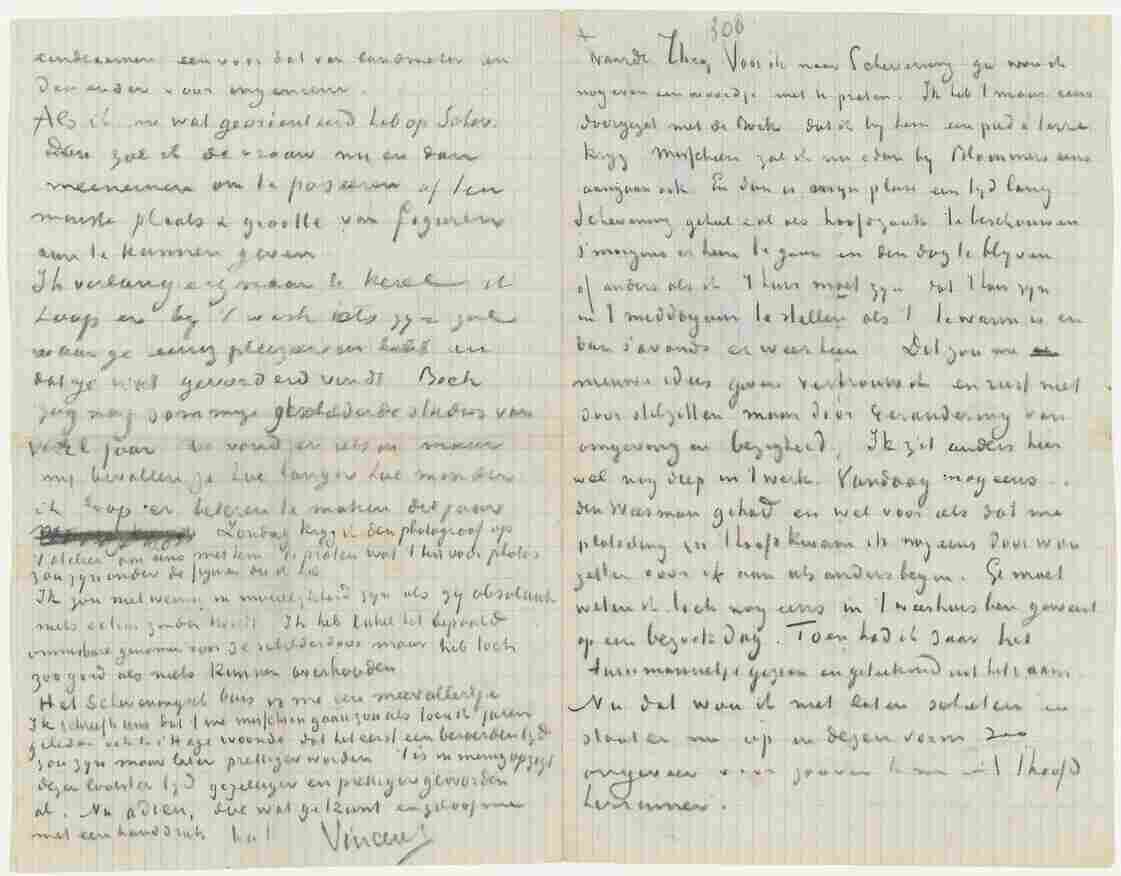 een voor dat van landmeter en
den ander voor ingenieur.
Als ik me wat georienteerd heb op Schev.
dan zal ik de vrouw nu en dan
meenemen om te poseeren of ten
minste plaats & grootte van figuren
aan te kunnen geven
Ik verlang erg naar U kerel ik
hoop er bij 't werk iets zijn zal
waar ge eenig pleizier in hebt en
dat ge niet gevorderd vindt Bock
zag nog sommige geschilderde studies van
verl jaar & vond er iets in maar
mij bevallen ze hoe langer hoe minder
ik hoop er betere te maken dit jaar
Zondag krijg ik een photograaf op
't atelier om eens met hem te praten wat 't is voor photos
zou zijn onder de figuren die ik
Ik zou niet weinig in moeielijkheid zijn als gij absoluut
niets extra zenden kondt Ik heb enkel het bepaald
onmisbare genomen voor de schilderdoos maar heb toch
zoo goed als niets kunnen overhouden
Het Schevenings huis is me een meevallertje
Ik schreef U eens dat 't me misschien gaan zou als toen ik jaren
geleden ook in den Hage woonde dat het eerst een beroerden tijd
zou zijn maar later prettiger worden 't is in menig opzigt
dezen laatsten tijd gezelliger en prettiger geworden
al. Nu adieu, doe wat ge kunt en geloof me
met een handdruk t.à t. Vincent
300
Waarde Theo, Voor ik naar Schevening ga wou ik
nog even een woordje met U praten. Ik heb 't maar eens
doorgezet met de Bock dat ik bij hem een pied à terre
krijg Misschien zal ik nu & dan bij Blommers eens
aangaan ook En dan is mijn plan een tijd lang
Schevening geheel & al als hoofdzaak te beschouwen
's morgens er heen te gaan en den dag te blijven
of anders als ik t'huis moet zijn dat t'huis zijn
in 't middaguur te stellen als 't te warm is en
dan s'avonds er weer heen Dit zou me
nieuwe idees geven vertrouw ik en rust niet
door stilzitten maar door verandering van
omgeving en bezigheid. Ik zit anders hier
wel nog diep in 't werk. Vandaag nog eens
den Weesman gehad en wel voor iets dat me
plotseling in 't hoofd kwam ik nog eens door wou
zetten voor ik aan iets anders begon. Ge moet
weten ik toch nog eens in 't weeshuis ben geweest
op een bezoekdag. Toen had ik daar het
tuinmannetje gezien en geteekend uit het raam.
Nu dat wou ik niet laten schieten en
staat er nu op in dezen vorm zoo
ongeveer voor zoover ik me uit 't hoofd
herinner.